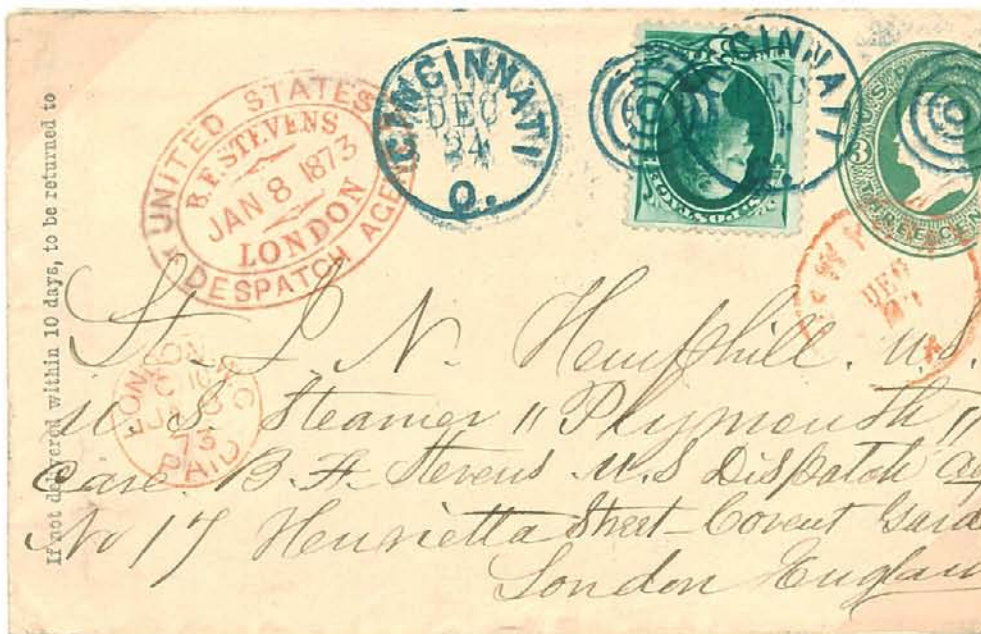 If not delivered within 10 days, to be returned to
UNITED STATES
B.F. STEVENS
JAN 8 1873
LONDON
DESPATCH AGENCY
CINCINNATI
DEC
24
O.
CINCINNATI
DEC
O.
U.S. POSTAGE
3
THREE CEN
NEW YORK
DEC
LONDON E C
C
JA 8
73
PAID
Lt. J N. Hemphill. U.S.
U. S. Steamer "Plymouth"
Care. B. F. Stevens U.S Dispatch Ag
No 17 Henrietta Street - Covent Gard
London Englan